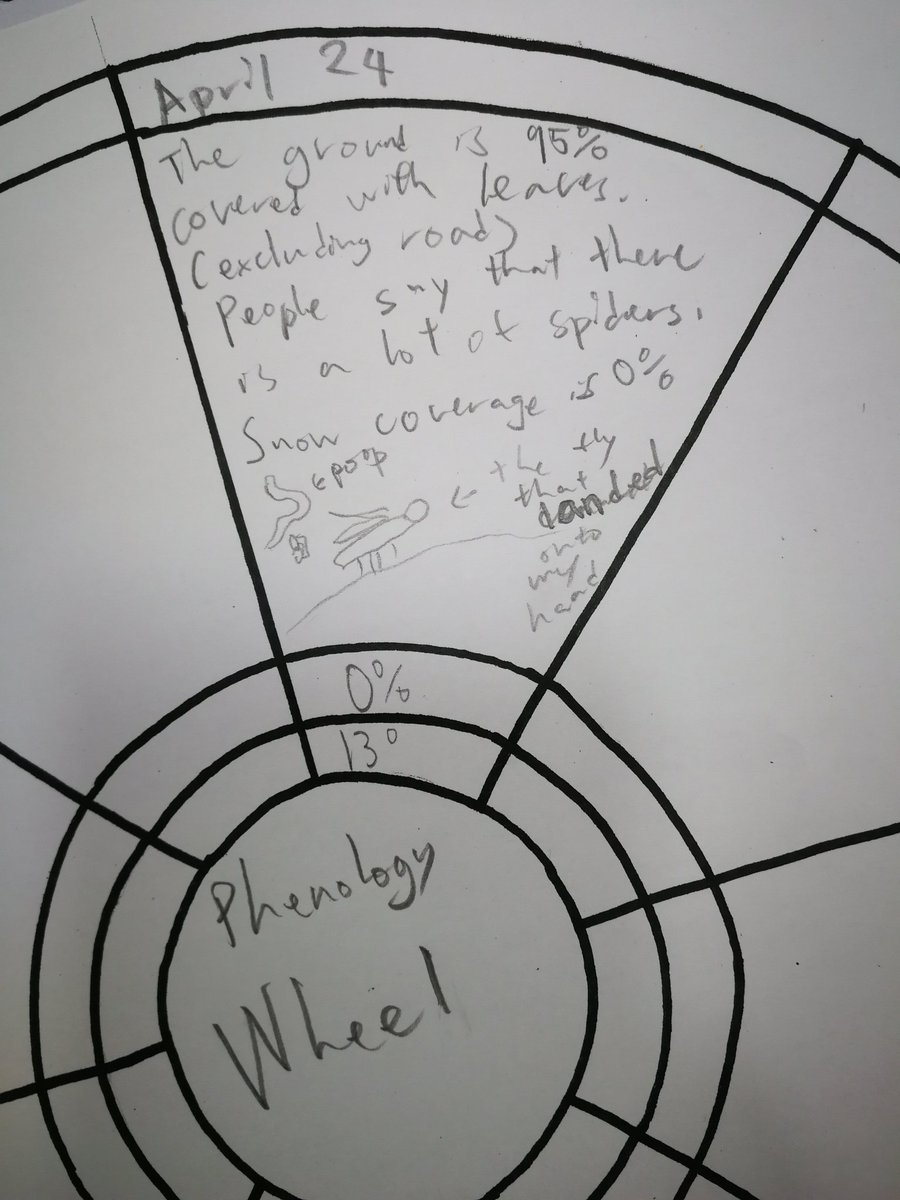 April 24
The ground is 95%
covered with leaves.
(excluding road)
People say that there
is a lot of spiders.
Snow coverage is 0%
←poop
← the fly
that
landed
onto
my
hand
0%
13°
Phenology
Wheel